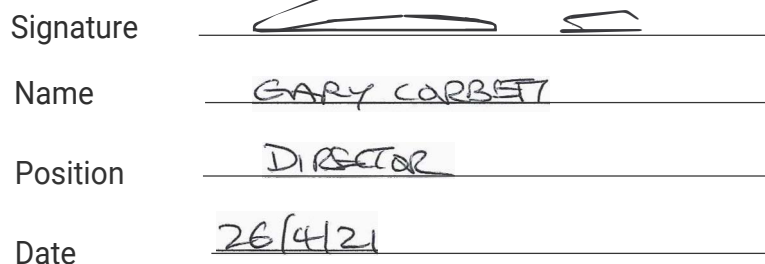 Signature
Name GARY CORBETT
Position DIRECTOR
Date 26/4/21